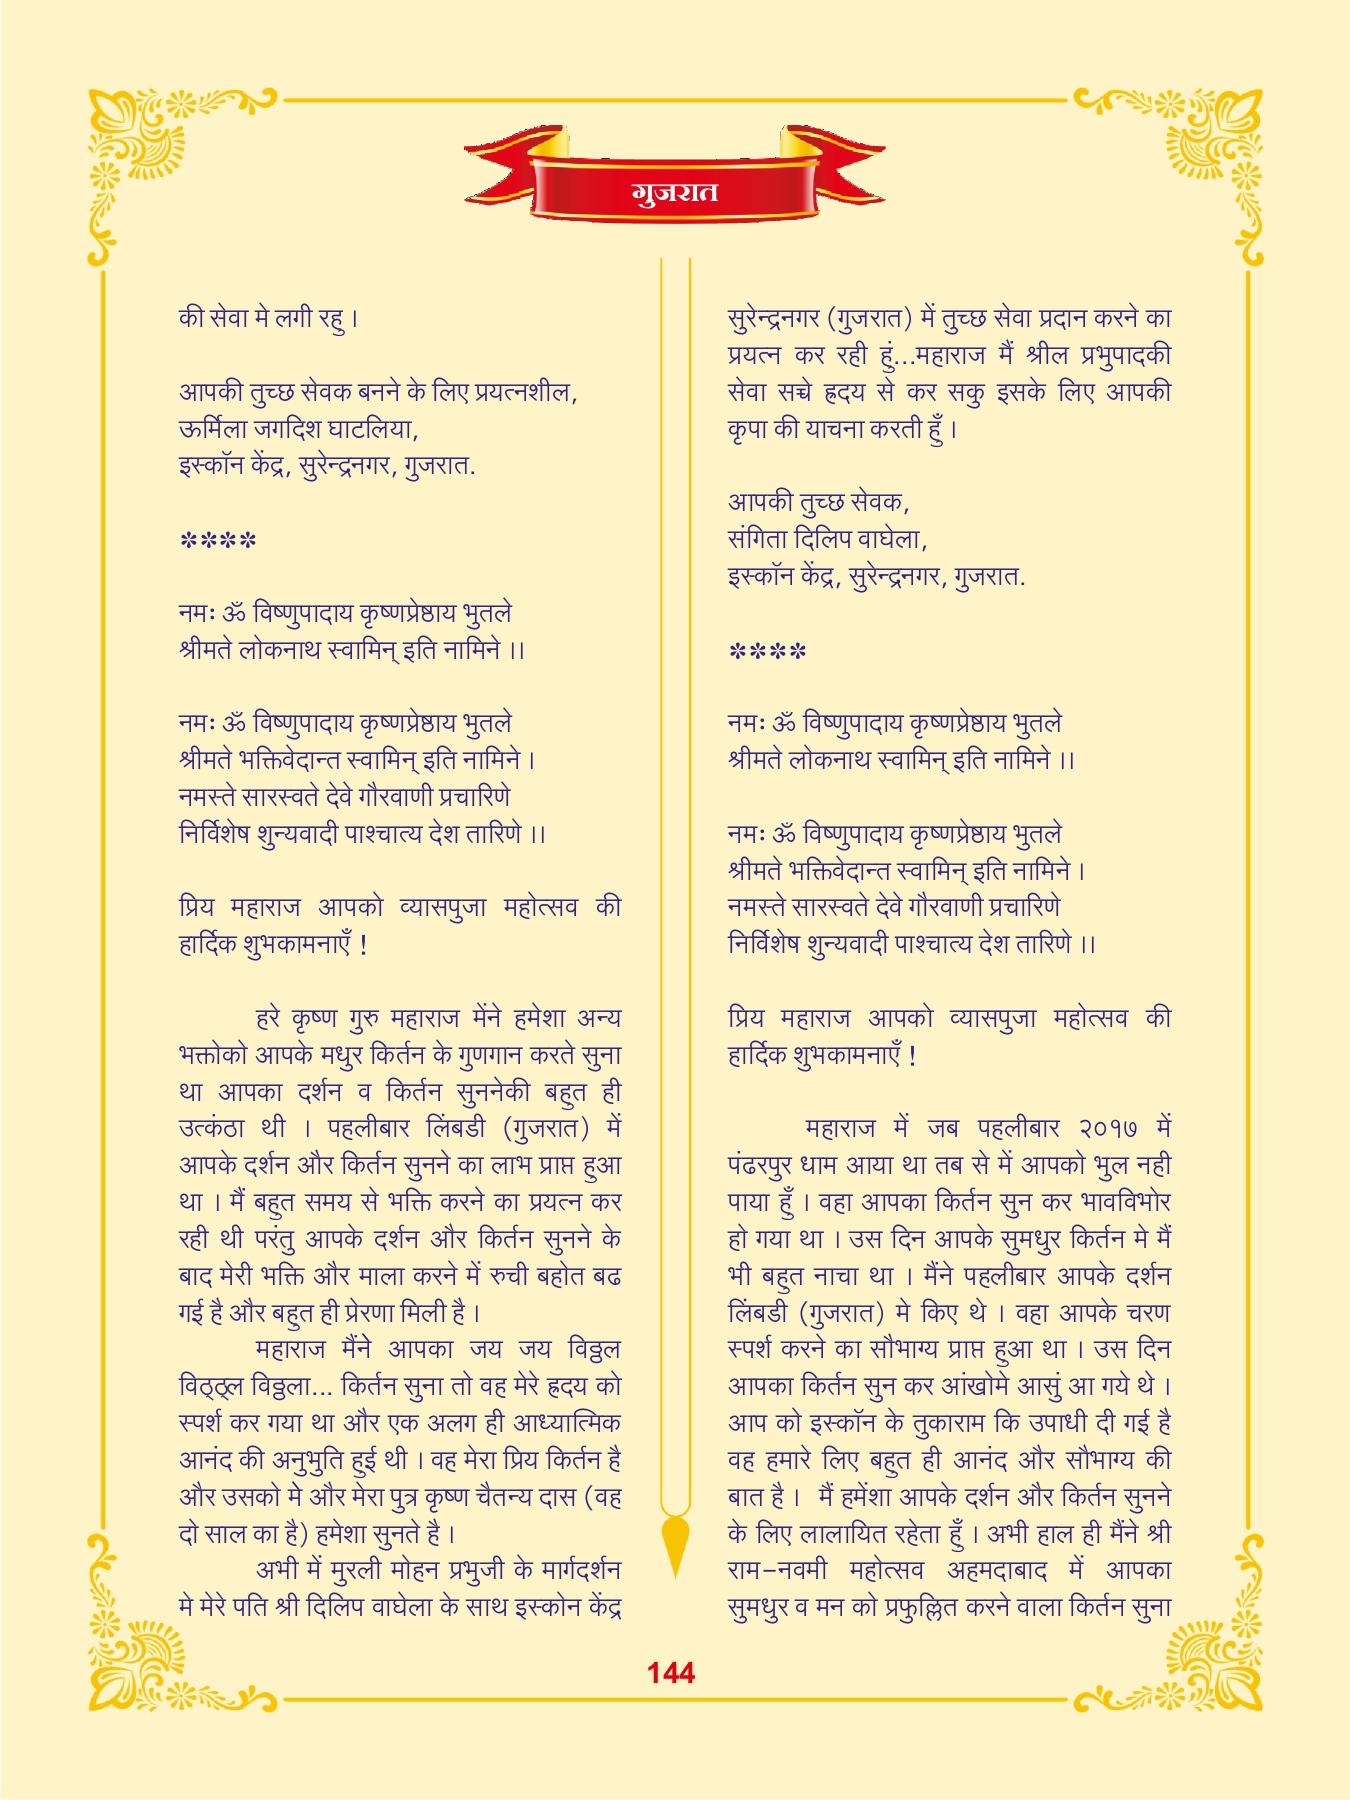 गुजरात
की सेवा मे लगी रहु ।
आपकी तुच्छ सेवक बनने के लिए प्रयत्नशील,
ऊर्मिला जगदिश घाटलिया,
इस्कॉन केंद्र, सुरेन्द्रनगर, गुजरात.
****
नमः ॐ विष्णुपादाय कृष्णप्रेष्ठाय भुतले
श्रीमते लोकनाथ स्वामिन् इति नामिने ।।
नमः ॐ विष्णुपादाय कृष्णप्रेष्ठाय भुतले
श्रीमते भक्तिवेदान्त स्वामिन् इति नामिने ।
नमस्ते सारस्वते देवे गौरवाणी प्रचारिणे
निर्विशेष शुन्यवादी पाश्चात्य देश तारिणे ।।
प्रिय महाराज आपको व्यासपुजा महोत्सव की
हार्दिक शुभकामनाएँ !
हरे कृष्ण गुरु महाराज मेंने हमेशा अन्य
भक्तोको आपके मधुर किर्तन के गुणगान करते सुना
था आपका दर्शन व किर्तन सुननेकी बहुत ही
उत्कंठा थी । पहलीबार लिंबडी (गुजरात) में
आपके दर्शन और किर्तन सुनने का लाभ प्राप्त हुआ
था । मैं बहुत समय से भक्ति करने का प्रयत्न कर
रही थी परंतु आपके दर्शन और किर्तन सुनने के
बाद मेरी भक्ति और माला करने में रुची बहोत बढ
गई है और बहुत ही प्रेरणा मिली है ।
महाराज मैंने आपका जय जय विठ्ठल
विठ्ठ्ल विठ्ठला... किर्तन सुना तो वह मेरे ह्रदय को
स्पर्श कर गया था और एक अलग ही आध्यात्मिक
आनंद की अनुभुति हुई थी । वह मेरा प्रिय किर्तन है
और उसको मे और मेरा पुत्र कृष्ण चैतन्य दास (वह
दो साल का है) हमेशा सुनते है ।
अभी में मुरली मोहन प्रभुजी के मार्गदर्शन
मे मेरे पति श्री दिलिप वाघेला के साथ इस्कोन केंद्र
सुरेन्द्रनगर (गुजरात) में तुच्छ सेवा प्रदान करने का
प्रयत्न कर रही हुं...महाराज मैं श्रील प्रभुपादकी
सेवा सच्चे ह्रदय से कर सकु इसके लिए आपकी
कृपा की याचना करती हुँ ।
आपकी तुच्छ सेवक,
संगिता दिलिप वाघेला,
इस्कॉन केंद्र, सुरेन्द्रनगर, गुजरात.
****
नमः ॐ विष्णुपादाय कृष्णप्रेष्ठाय भुतले
श्रीमते लोकनाथ स्वामिन् इति नामिने ।।
नमः ॐ विष्णुपादाय कृष्णप्रेष्ठाय भुतले
श्रीमते भक्तिवेदान्त स्वामिन् इति नामिने ।
नमस्ते सारस्वते देवे गौरवाणी प्रचारिणे
निर्विशेष शुन्यवादी पाश्चात्य देश तारिणे ।।
प्रिय महाराज आपको व्यासपुजा महोत्सव की
हार्दिक शुभकामनाएँ !
महाराज में जब पहलीबार २०१७ में
पंढरपुर धाम आया था तब से में आपको भुल नही
पाया हुँ । वहा आपका किर्तन सुन कर भावविभोर
हो गया था । उस दिन आपके सुमधुर किर्तन मे मैं
भी बहुत नाचा था । मैंने पहलीबार आपके दर्शन
लिंबडी (गुजरात) मे किए थे । वहा आपके चरण
स्पर्श करने का सौभाग्य प्राप्त हुआ था । उस दिन
आपका किर्तन सुन कर आंखोमे आसुं आ गये थे ।
आप को इस्कॉन के तुकाराम कि उपाधी दी गई है
वह हमारे लिए बहुत ही आनंद और सौभाग्य की
बात है । मैं हमेंशा आपके दर्शन और किर्तन सुनने
के लिए लालायित रहेता हुँ । अभी हाल ही मैंने श्री
राम-नवमी महोत्सव अहमदाबाद में आपका
सुमधुर व मन को प्रफुल्लित करने वाला किर्तन सुना
144